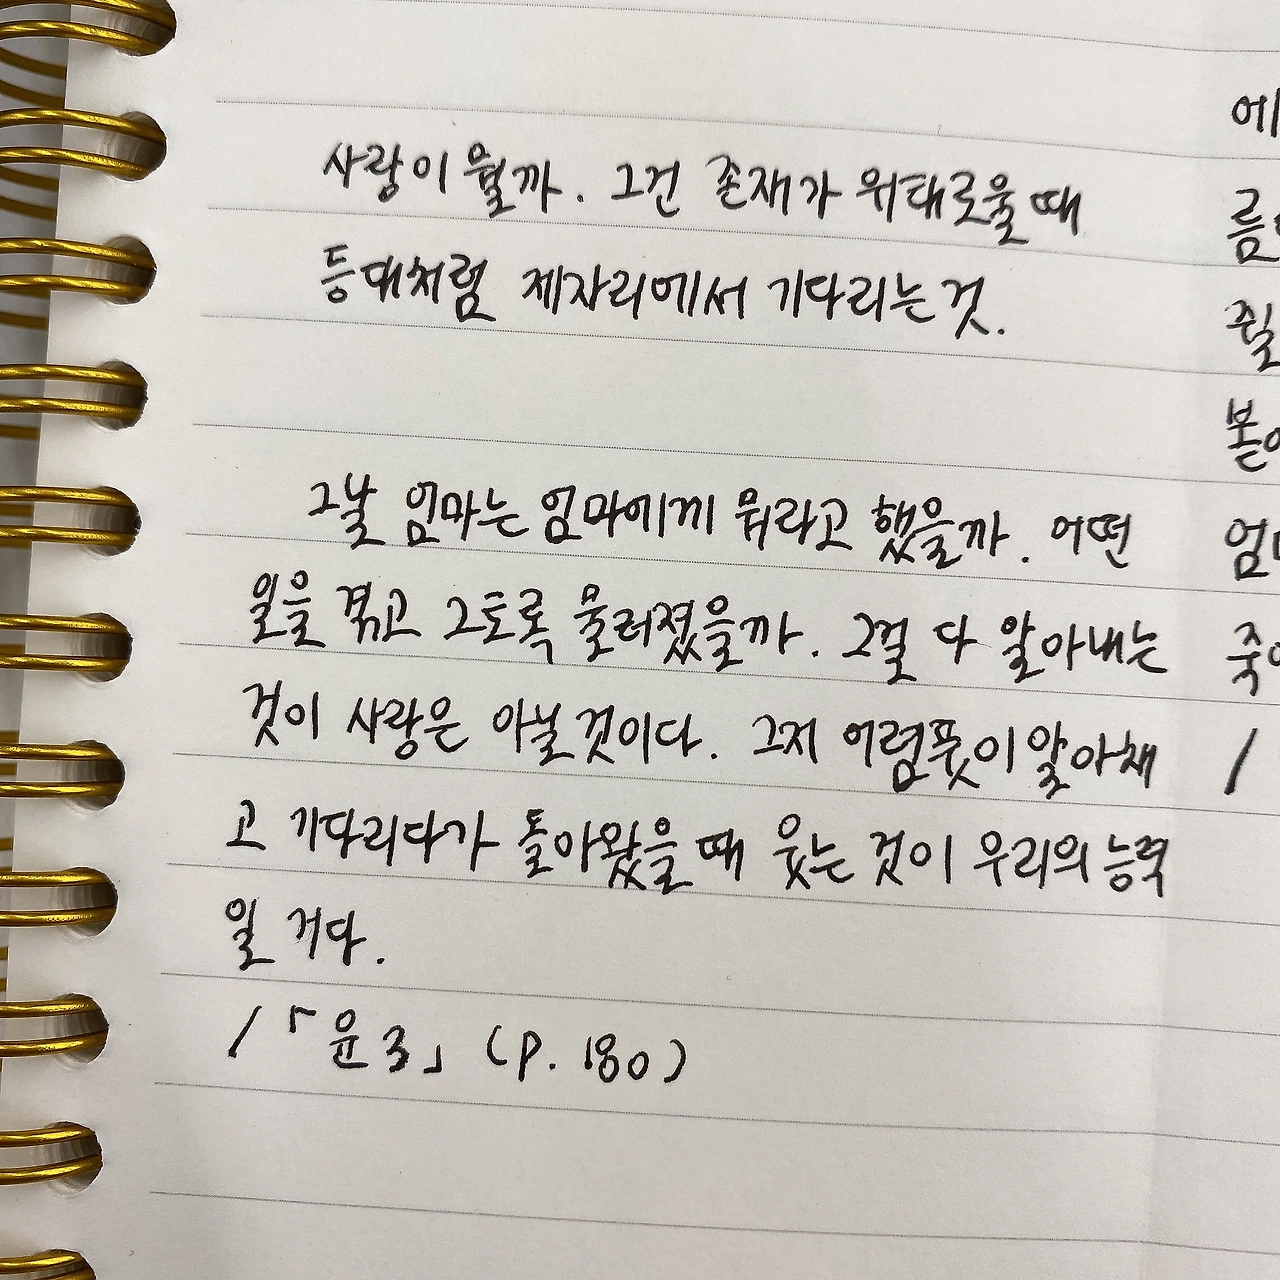 사랑이 뭘까. 그건 존재가 위태로울 때
등대처럼 제자리에서 기다리는 것.
그날 엄마는 엄마에게 뭐라고 했을까. 어떤
일을 겪고 그토록 물러졌을까. 그걸 다 알아내는
것이 사랑은 아닐 것이다. 그저 어렴풋이 알아채
고 기다리다가 돌아왔을 때 웃는 것이 우리의 능력
일 거다.
/「윤 3」 (p. 180)
에
름
질
본
엄
죽
/